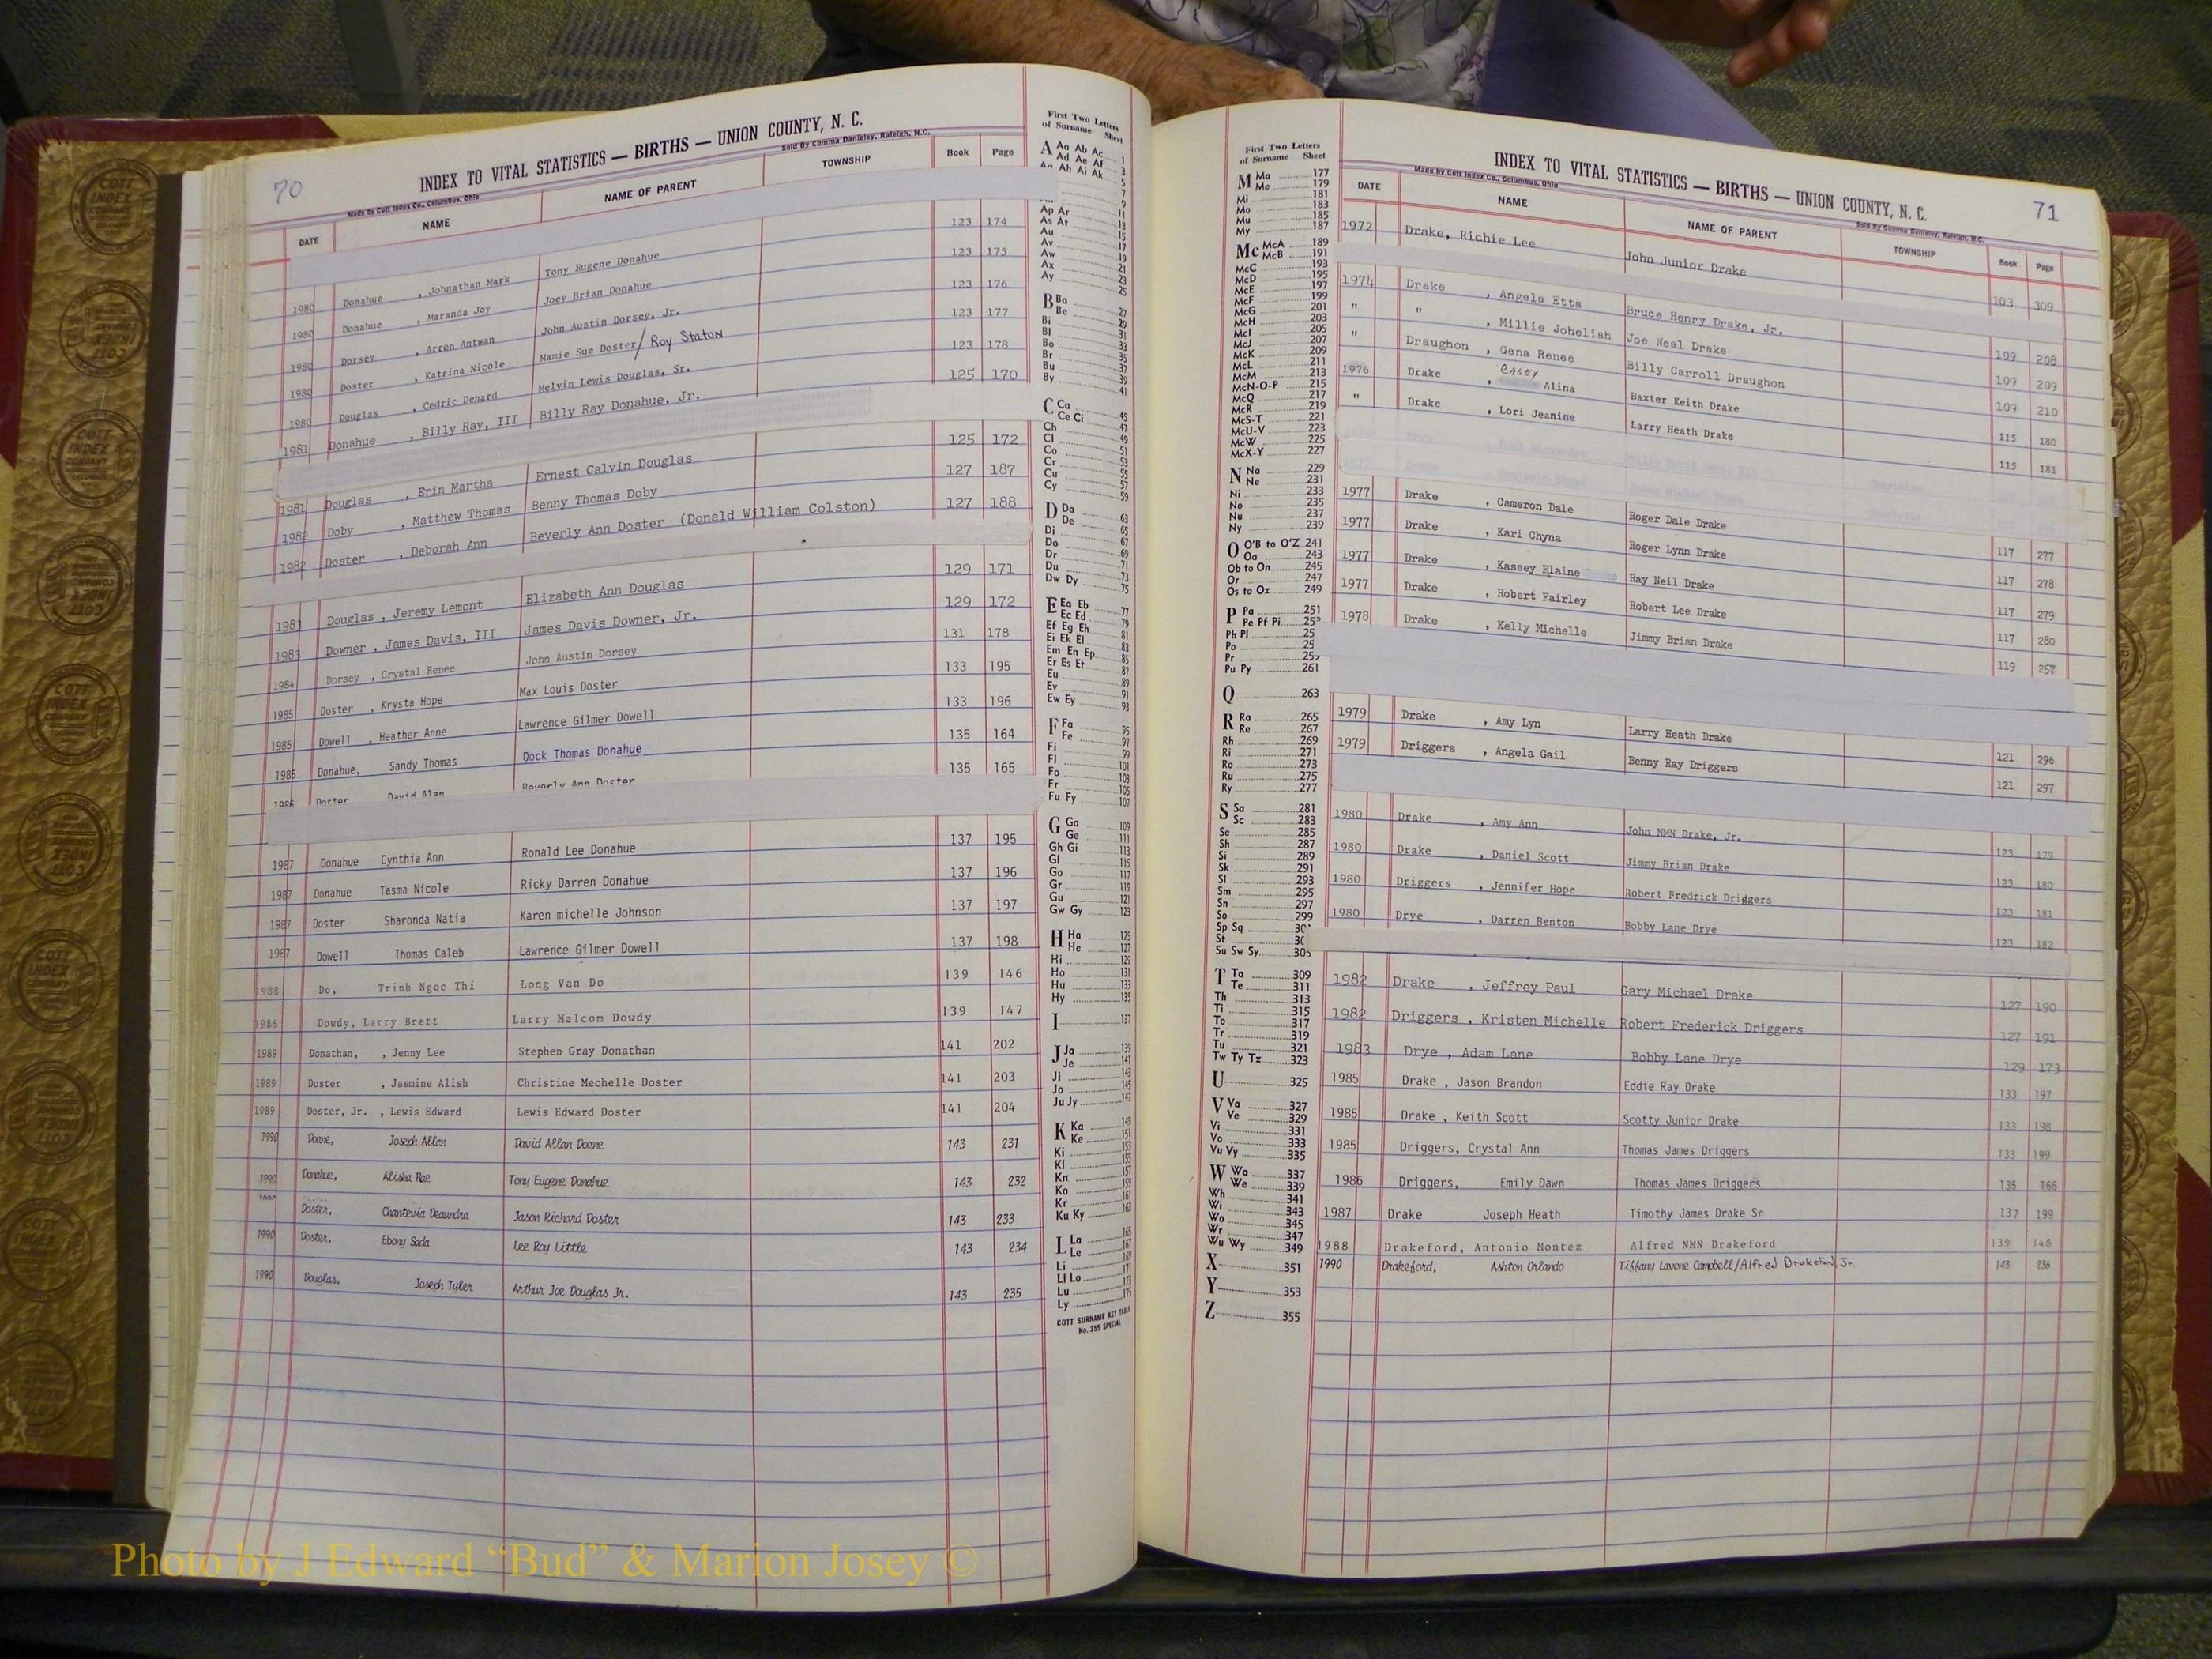 70
INDEX TO VITAL STATISTICS — BIRTHS — UNION COUNTY, N. C.
Made by Cott Index Co., Columbus, Ohio
Sold By Comma Danieley, Raleigh, N.C.
DATE NAME NAME OF PARENT TOWNSHIP Book Page
1980 Donahue , Johnathan Mark Tony Eugene Donahue 123 174
1980 Donahue , Maranda Joy Joey Brian Donahue 123 175
1980 Dorsey , Arron Antwan John Austin Dorsey, Jr. 123 176
1980 Doster , Katrina Nicole Mamie Sue Doster / Roy Staton 123 177
1980 Douglas , Cedric Denard Melvin Lewis Douglas, Sr. 123 178
1981 Donahue , Billy Ray, III Billy Ray Donahue, Jr. 125 170
1981 Douglas , Erin Martha Ernest Calvin Douglas 125 172
1982 Doby , Matthew Thomas Benny Thomas Doby 127 187
1982 Doster , Deborah Ann Beverly Ann Doster (Donald William Colston) 127 188
1983 Douglas , Jeremy Lemont Elizabeth Ann Douglas 129 171
1983 Downer , James Davis, III James Davis Downer, Jr. 129 172
1984 Dorsey , Crystal Renee John Austin Dorsey 131 178
1985 Doster , Krysta Hope Max Louis Doster 133 195
1985 Dowell , Heather Anne Lawrence Gilmer Dowell 133 196
1986 Donahue, Sandy Thomas Dock Thomas Donahue 135 164
1986 Doster David Alan Beverly Ann Doster 135 165
1987 Donahue Cynthia Ann Ronald Lee Donahue 137 195
1987 Donahue Tasma Nicole Ricky Darren Donahue 137 196
1987 Doster Sharonda Natia Karen michelle Johnson 137 197
1987 Dowell Thomas Caleb Lawrence Gilmer Dowell 137 198
1988 Do, Trinh Ngoc Thi Long Van Do 139 146
1988 Dowdy, Larry Brett Larry Malcom Dowdy 139 147
1989 Donathan, , Jenny Lee Stephen Gray Donathan 141 202
1989 Doster , Jasmine Alish Christine Mechelle Doster 141 203
1989 Doster, Jr. , Lewis Edward Lewis Edward Doster 141 204
1990 Doane, Joseph Allan David Allan Doane 143 231
1990 Donahue, Alisha Rae Tony Eugene Donahue 143 232
1990 Doster, Chantevia Deaundra Jason Richard Doster 143 233
1990 Doster, Ebony Sada Lee Roy Little 143 234
1990 Douglas, Joseph Tyler Arthur Joe Douglas Jr. 143 235
First Two Letters
of Surname Sheet
A Aa Ab Ac 1
Ad Ae Af 3
Ag Ah Ai Ak 5
7
9
Ap Ar 11
As At 13
Au 15
Av 17
Aw 19
Ax 21
Ay 23
25
B Ba 27
Be 29
Bi 31
Bl 33
Bo 35
Br 37
Bu 39
By 41
C Ca 45
Ce Ci 47
Ch 49
Cl 51
Co 53
Cr 55
Cu 57
Cy 59
D Da 63
De 65
Di 67
Do 69
Dr 71
Du 73
Dw Dy 75
E Ea Eb 77
Ec Ed 79
Ef Eg Eh 81
Ei Ek El 83
Em En Ep 85
Er Es Et 87
Eu 89
Ev 91
Ew Ey 93
F Fa 95
Fe 97
Fi 99
Fl 101
Fo 103
Fr 105
Fu Fy 107
G Ga 109
Ge 111
Gh Gi 113
Gl 115
Go 117
Gr 119
Gu 121
Gw Gy 123
H Ha 125
He 127
Hi 129
Ho 131
Hu 133
Hy 135
I 137
J Ja 139
Je 141
Ji 143
Jo 145
Ju Jy 147
K Ka 149
Ke 151
Ki 153
Kl 155
Kn 157
Ko 159
Kr 161
Ku Ky 163
L La 165
Le 167
Li 169
Ll Lo 171
Lu 173
Ly 175
COTT SURNAME KEY TABLE
No. 355 SPECIAL
First Two Letters
of Surname Sheet
M Ma 177
Me 179
Mi 181
Mo 183
Mu 185
My 187
Mc McA 189
McB 191
McC 193
McD 195
McE 197
McF 199
McG 201
McH 203
McI 205
McJ 207
McK 209
McL 211
McM 213
McN-O-P 215
McQ 217
McR 219
McS-T 221
McU-V 223
McW 225
McX-Y 227
N Na 229
Ne 231
Ni 233
No 235
Nu 237
Ny 239
O O'B to O'Z 241
Oa 243
Ob to On 245
Or 247
Os to Oz 249
P Pa 251
Pe Pf Pi 253
Ph Pl 25
Po 25
Pr 259
Pu Py 261
Q 263
R Ra 265
Re 267
Rh 269
Ri 271
Ro 273
Ru 275
Ry 277
S Sa 281
Sc 283
Se 285
Sh 287
Si 289
Sk 291
Sl 293
Sm 295
Sn 297
So 299
Sp Sq 301
St 30
Su Sw Sy 305
T Ta 309
Te 311
Th 313
Ti 315
To 317
Tr 319
Tu 321
Tw Ty Tz 323
U 325
V Va 327
Ve 329
Vi 331
Vo 333
Vu Vy 335
W Wa 337
We 339
Wh 341
Wi 343
Wo 345
Wr 347
Wu Wy 349
X 351
Y 353
Z 355
INDEX TO VITAL STATISTICS — BIRTHS — UNION COUNTY, N. C.
71
Made by Cott Index Co., Columbus, Ohio
Sold By Comma Danieley, Raleigh, N.C.
DATE NAME NAME OF PARENT TOWNSHIP Book Page
1972 Drake, Richie Lee John Junior Drake 103 309
1974 Drake , Angela Etta Bruce Henry Drake, Jr. 109 208
" " , Millie Joheliah Joe Neal Drake 109 209
" Draughon , Gena Renee Billy Carroll Draughon 109 210
1976 Drake , CASEY Alina Baxter Keith Drake 115 180
" Drake , Lori Jeanine Larry Heath Drake 115 181
1977 Drake , Cameron Dale Roger Dale Drake 117 277
1977 Drake , Kari Chyna Roger Lynn Drake 117 278
1977 Drake , Kassey Elaine Ray Neil Drake 117 279
1977 Drake , Robert Fairley Robert Lee Drake 117 280
1978 Drake , Kelly Michelle Jimmy Brian Drake 119 257
1979 Drake , Amy Lyn Larry Heath Drake 121 296
1979 Driggers , Angela Gail Benny Ray Driggers 121 297
1980 Drake , Amy Ann John NMN Drake, Jr. 123 179
1980 Drake , Daniel Scott Jimmy Brian Drake 123 180
1980 Driggers , Jennifer Hope Robert Fredrick Driggers 123 181
1980 Drye , Darren Benton Bobby Lane Drye 123 182
1982 Drake , Jeffrey Paul Gary Michael Drake 127 190
1982 Driggers , Kristen Michelle Robert Frederick Driggers 127 191
1983 Drye , Adam Lane Bobby Lane Drye 129 173
1985 Drake , Jason Brandon Eddie Ray Drake 133 197
1985 Drake , Keith Scott Scotty Junior Drake 133 198
1985 Driggers, Crystal Ann Thomas James Driggers 133 199
1986 Driggers, Emily Dawn Thomas James Driggers 135 166
1987 Drake Joseph Heath Timothy James Drake Sr 137 199
1988 Drakeford, Antonio Montez Alfred NMN Drakeford 139 148
1990 Drakeford, Ashton Orlando Tiffany Lavone Campbell/Alfred Drakeford, Jr. 143 236
Photo by J Edward “Bud” & Marion Josey ©